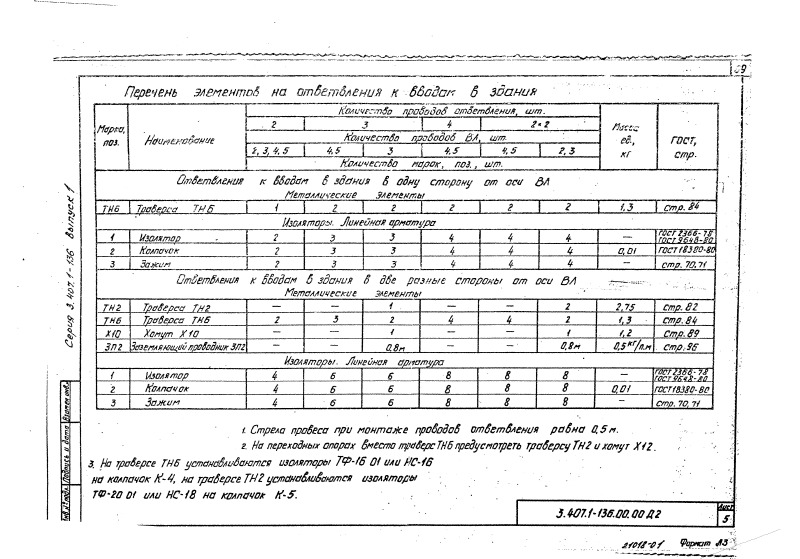 69
Перечень элементов на ответвления к вводам в здания
Марка, поз. | Наименование | Количество проводов ответвления, шт. | Масса ед., кг | ГОСТ, стр.
2 | 3 | 4 | 2×2
Количество проводов ВЛ, шт.
2, 3, 4, 5 | 4,5 | 3 | 4,5 | 4,5 | 2,3
Количество марок, поз., шт.
Ответвления к вводам в здания в одну сторону от оси ВЛ
Металлические элементы
ТН6 | Траверса ТН6 | 1 | 2 | 2 | 2 | 2 | 2 | 1,3 | стр. 84
Изоляторы. Линейная арматура
1 | Изолятор | 2 | 3 | 3 | 4 | 4 | 4 | — | ГОСТ 2366-78 ГОСТ 9648-80
2 | Колпачок | 2 | 3 | 3 | 4 | 4 | 4 | 0,01 | ГОСТ 18380-80
3 | Зажим | 2 | 3 | 3 | 4 | 4 | 4 | — | стр. 70,71
Ответвления к вводам в здания в две разные стороны от оси ВЛ
Металлические элементы
ТН2 | Траверса ТН2 | — | — | 1 | — | — | 2 | 2,75 | стр. 82
ТН6 | Траверса ТН6 | 2 | 3 | 2 | 4 | 4 | 2 | 1,3 | стр. 84
Х10 | Хомут Х10 | — | — | 1 | — | — | 1 | 1,2 | стр. 89
ЗП2 | Заземляющий проводник ЗП2 | — | — | 0,8м | — | — | 0,8м | 0,5 кг/п.м | стр. 96
Изоляторы. Линейная арматура
1 | Изолятор | 4 | 6 | 6 | 8 | 8 | 8 | — | ГОСТ 2366-78 ГОСТ 9648-80
2 | Колпачок | 4 | 6 | 6 | 8 | 8 | 8 | 0,01 | ГОСТ 18380-80
3 | Зажим | 4 | 6 | 6 | 8 | 8 | 8 | — | стр. 70,71
1. Стрела провеса при монтаже проводов ответвления равна 0,5 м.
2. На переходных опорах вместо траверс ТН6 предусмотреть траверсу ТН2 и хомут Х12.
3. На траверсе ТН6 устанавливаются изоляторы ТФ-16 01 или НС-16
на колпачок К-4, на траверсе ТН2 устанавливаются изоляторы
ТФ-20 01 или НС-18 на колпачок К-5.
Серия 3.407.1-136 Выпуск 1
Инв.№ подл. Подпись и дата Взамен инв.
3.407.1-136.00.00 Д2
Лист
5
21018-01 Формат А3